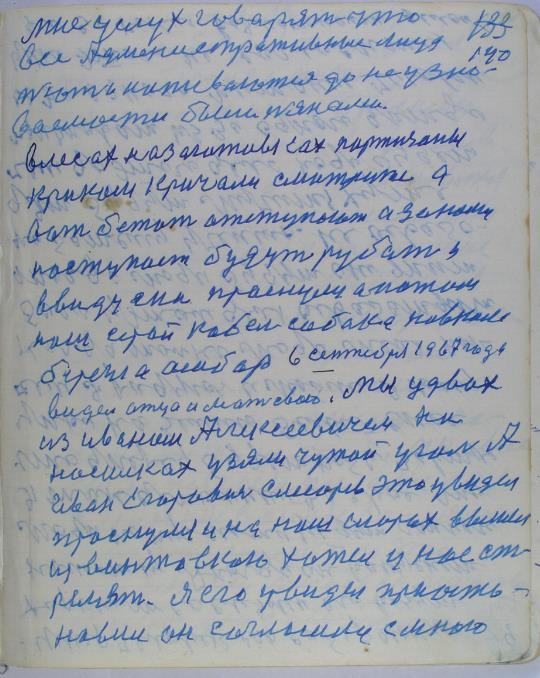 мне услух говарят что 133
все Администротивные лица 190
пють напиваются до не узно-
ваемости были пянами.
влесах на заготовках партизаны
криком кричали смотрите
вот бегот отступают а
поступает будут рубать
ввиду сна праснулся апотом
наш серой кобел собака
6 сентября 1967 года
видел отца и мать своего. Мы удвох
из иваном Алексеевичем на
носилках узяли чужой угол А
Иван Егорович Слесорев это увидел
проснулся и на наш вышел
из винтовкою хотел у нас ст-
релят. Я его увидел
новил он согласился смного